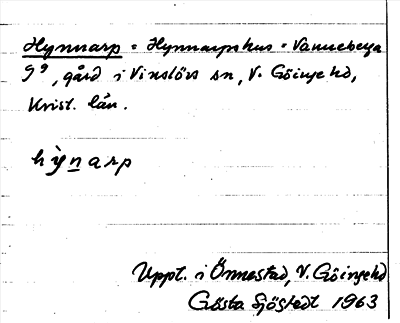 Hynnarp = Hynnarpshus = Vanneberga
9⁹, gård i Vinslövs sn, V. Göinge hd,
Krist. län.
hỳnarp
Uppt. i Önnestad, V. Göinge hd
Gösta Sjöstedt 1963